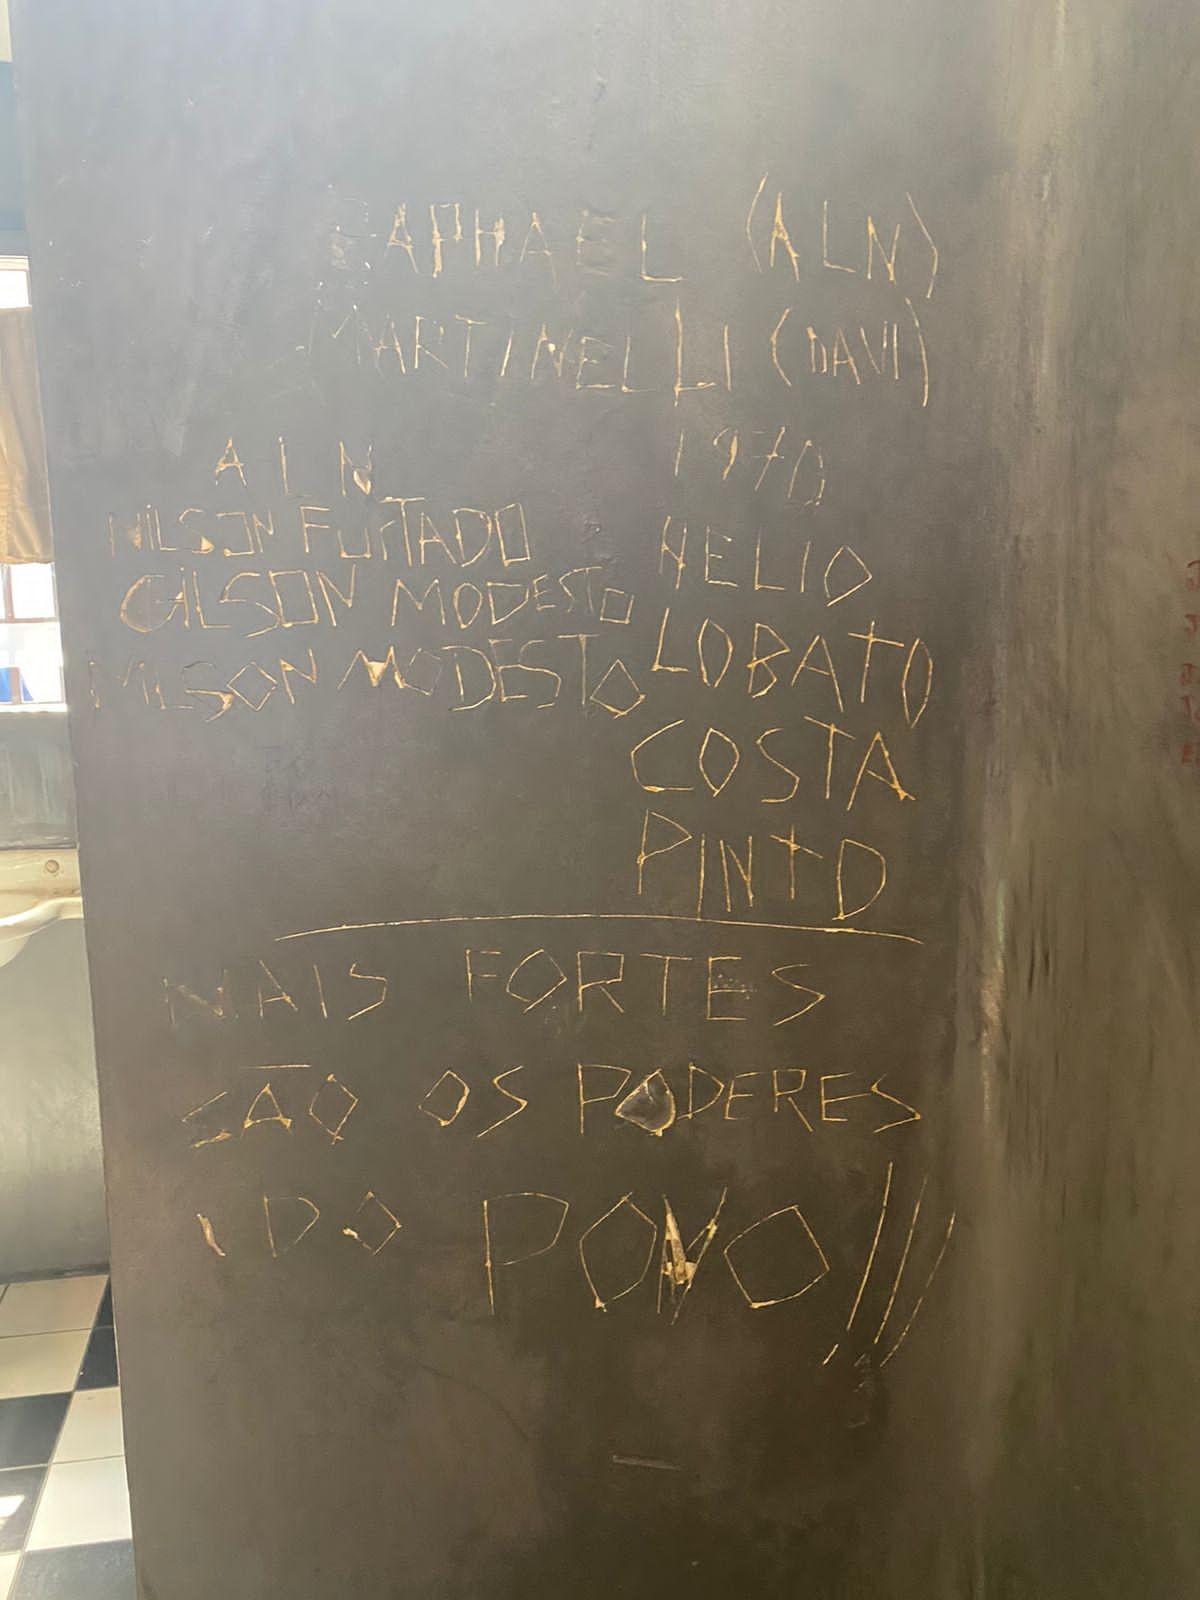 RAPHAEL (ALN)
MARTINELLI (DAVI)
1970
ALN
NILSON FURTADO
GILSON MODESTO
NILSON MODESTO
HELIO
LOBATO
COSTA
PINTO
MAIS FORTES
SÃO OS PODERES
DO POVO!!!